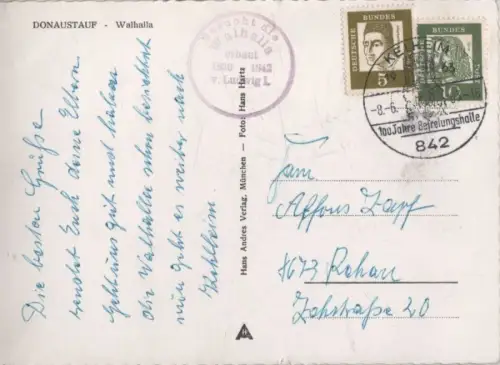 DONAUSTAUF - Walhalla
Besucht die
Walhalla
erbaut
1830 1842
v. Ludwig I.
DEUTSCHE BUNDES
5
BUNDES
10
KELHEIM
-8.-6.
100 Jahre Befreiungshalle
842
Die besten Grüße
sendet Euch deine Eltern
Geht uns gut und haben
die Walhalla schon besichtigt
nun geht es weiter nach
Kehlheim
Hans Andres Verlag, München - Foto: Hans Hartz
A
Fam
Alfons Zapf
8673 Rehau
Jahstraße 20